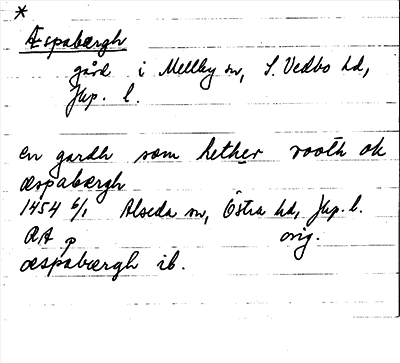 *
Æspabærgh
gård i Mellby sn, S. Vedbo hd,
Jkp. l.
en gardh som hether rooth ok
æspabærgh
1454 6/1 Alseda sn, Östra hd, Jkp. l.
RA p orig.
æspabærgh ib.